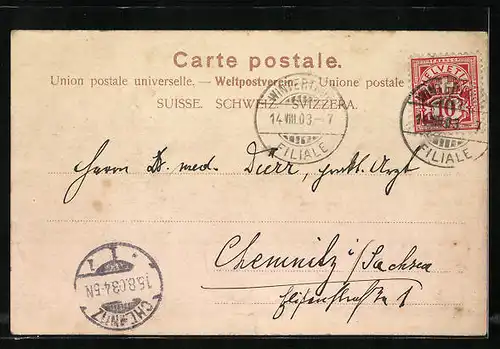 Carte postale.
Union postale universelle. — Weltpostverein. — Unione postale
SUISSE. SCHWEIZ. SVIZZERA.
HELVETIA
10
WINTERTHUR
14.VIII.03.-7
FILIALE
14.VIII.03.-7
FILIALE
Herrn Dr. med. Dierr, prakt. Arzt
Chemnitz i/Sachsen
1
CHEMNITZ
15.8.03.4-5N
1